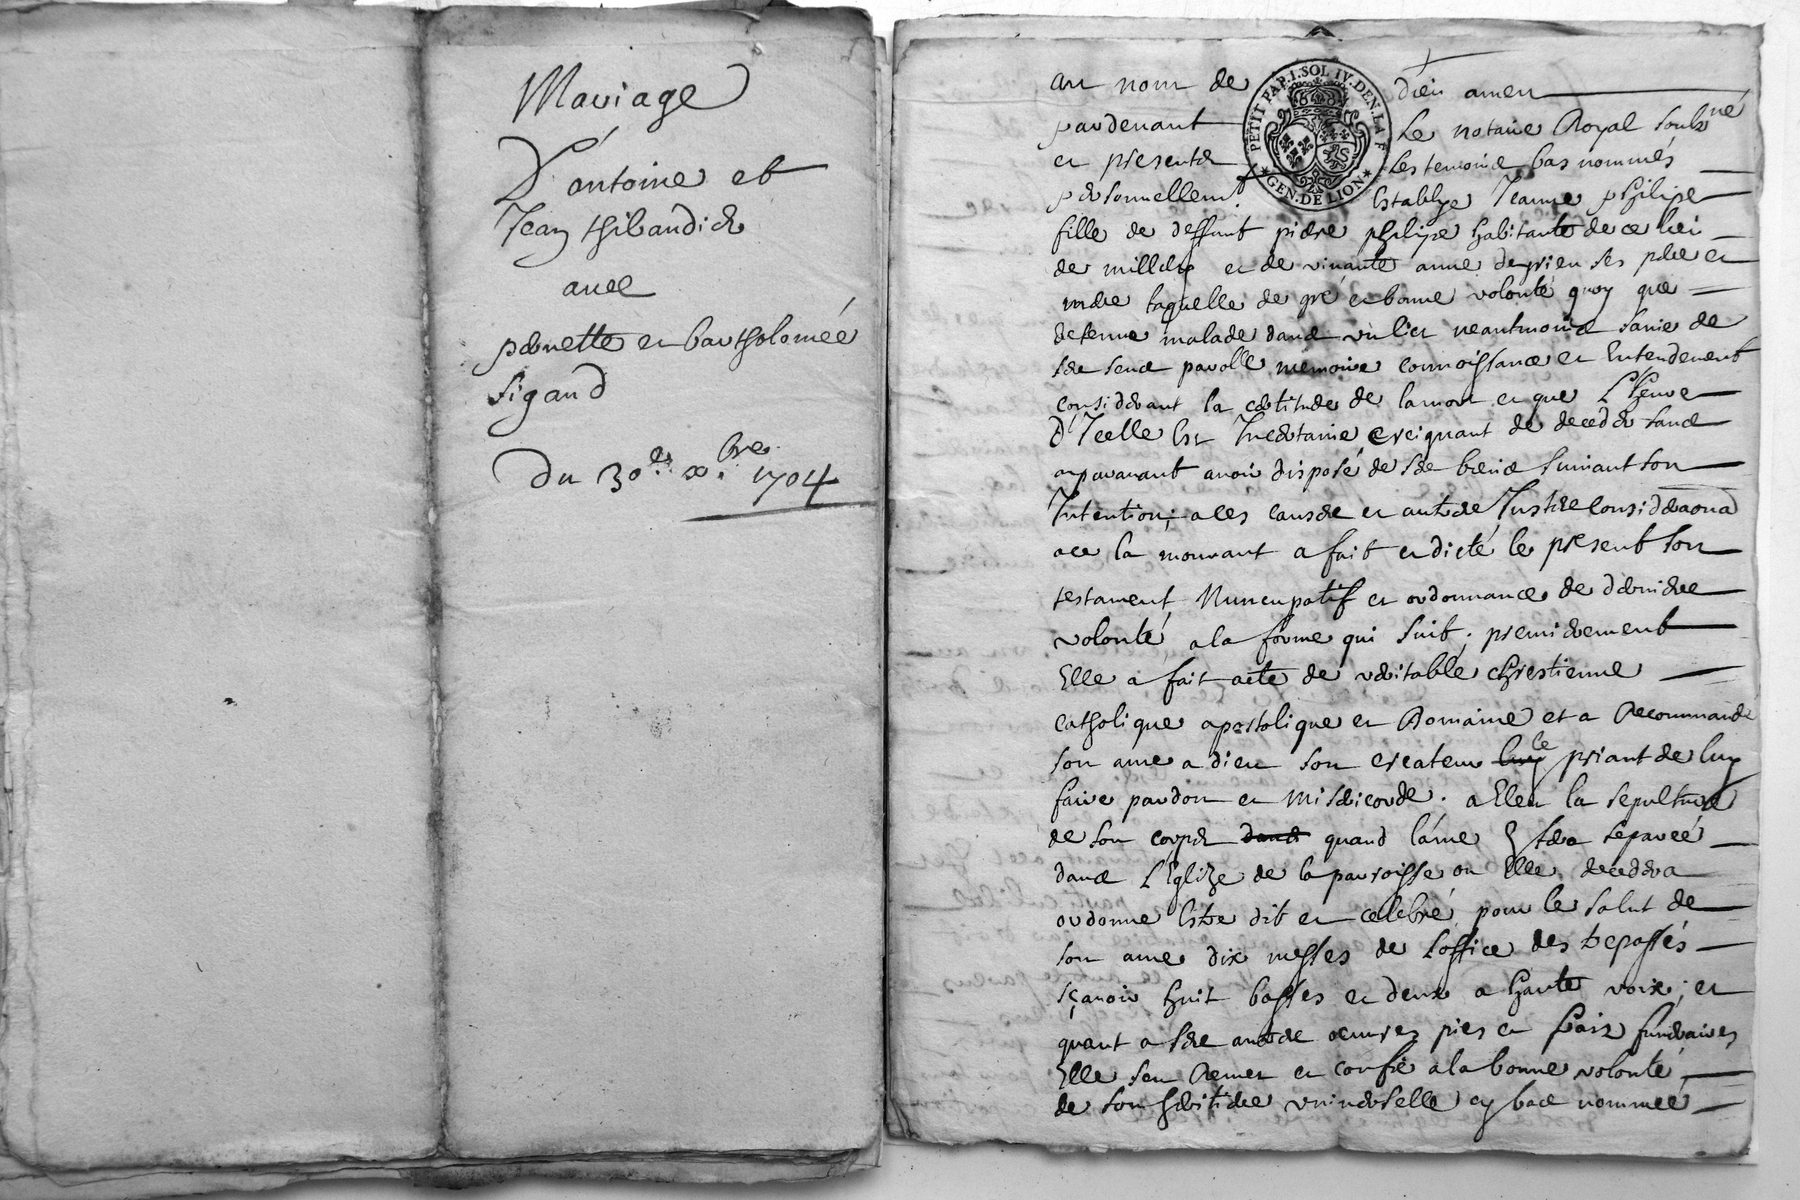 Mariage
D'antoine et
Jean thibaudier
avec
pernette et bartholomée
Sigaud
Du 30e xbre 1704
au nom de dieu amen
pardevant Le notaire Royal soubzné
et presents les temoins bas nommés
personnellemt. Establye Jeanne philipe
fille de deffunt pierre philipe habitante de ce lieu
de millery et de vivante anne depsieu ses pere et
mere laquelle de gré et bonne volonté quoy que
detenue malade dans un lict neantmoins saine de
ses sens parolle memoire connoissance et Entendement
considerant la certitude de la mort et que L'heure
D'Icelle Est Incertaine creignant de deceder sans
auparavant avoir disposé de ses biens suivant son
Intention; a ces causes et autres Justes consideraons
a ce la mouvant a fait et dicté le present son
testament Nuncupatif et ordonnance de derniere
volonté a la forme qui suit; premierement
Elle a fait acte de veritable chrestienne
catholique apostolique et Romaine et a Recommandé
son ame a dieu son createur luy le priant de luy
faire pardon et misericorde. a Eleu la sepulture
de son corps dans quand l'ame y sera separeé
dans L'Eglize de la parroisse ou Elle decedera
ordonne Estre dit et celebré pour le salut de
son ame dix messes de L'office des trepassés
sçavoir huit basses et deux a haute voix; et
quant a ses autres oeuvres pies et fraix funeraires
Elle s'en Remet et confie a la bonne volonté
de son heritiere universelle cy bas nommeé
PETIT PAP. 1. SOL IV. DEN. LA F
GEN. DE LION